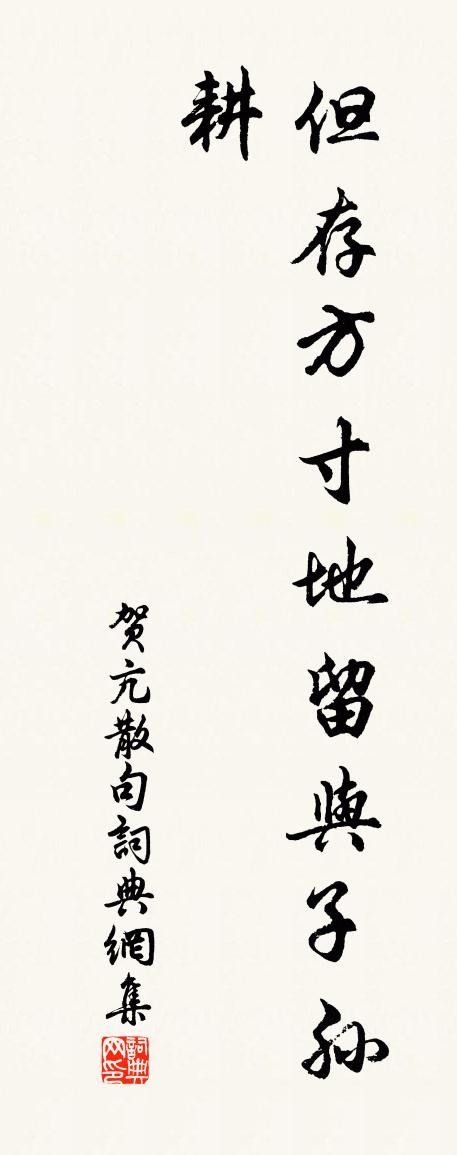 但存方寸地留與子孫
耕
贺亢散句詞典網集
詞典
网印